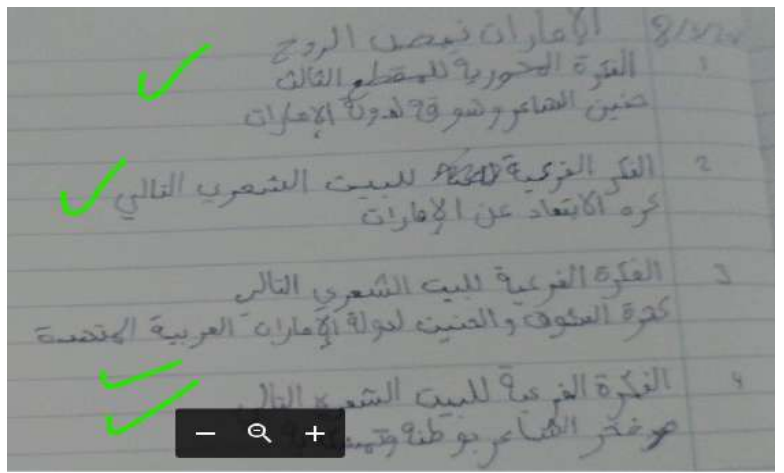 الإمارات نبض الروح
1 الفكرة المحورية للمقطع الثالث
حنين الشاعر وشوقة لدولة الإمارات
2 الفكر الفرعية للبيت الشعري التالي
كره الابتعاد عن الإمارات
3 الفكرة الفرعية للبيت الشعري التالي
كثرة الشوق والحنين لدولة الإمارات العربية المتحدة
4 الفكرة الفرعية للبيت الشعري التالي
فخر الشاعر بوطنة